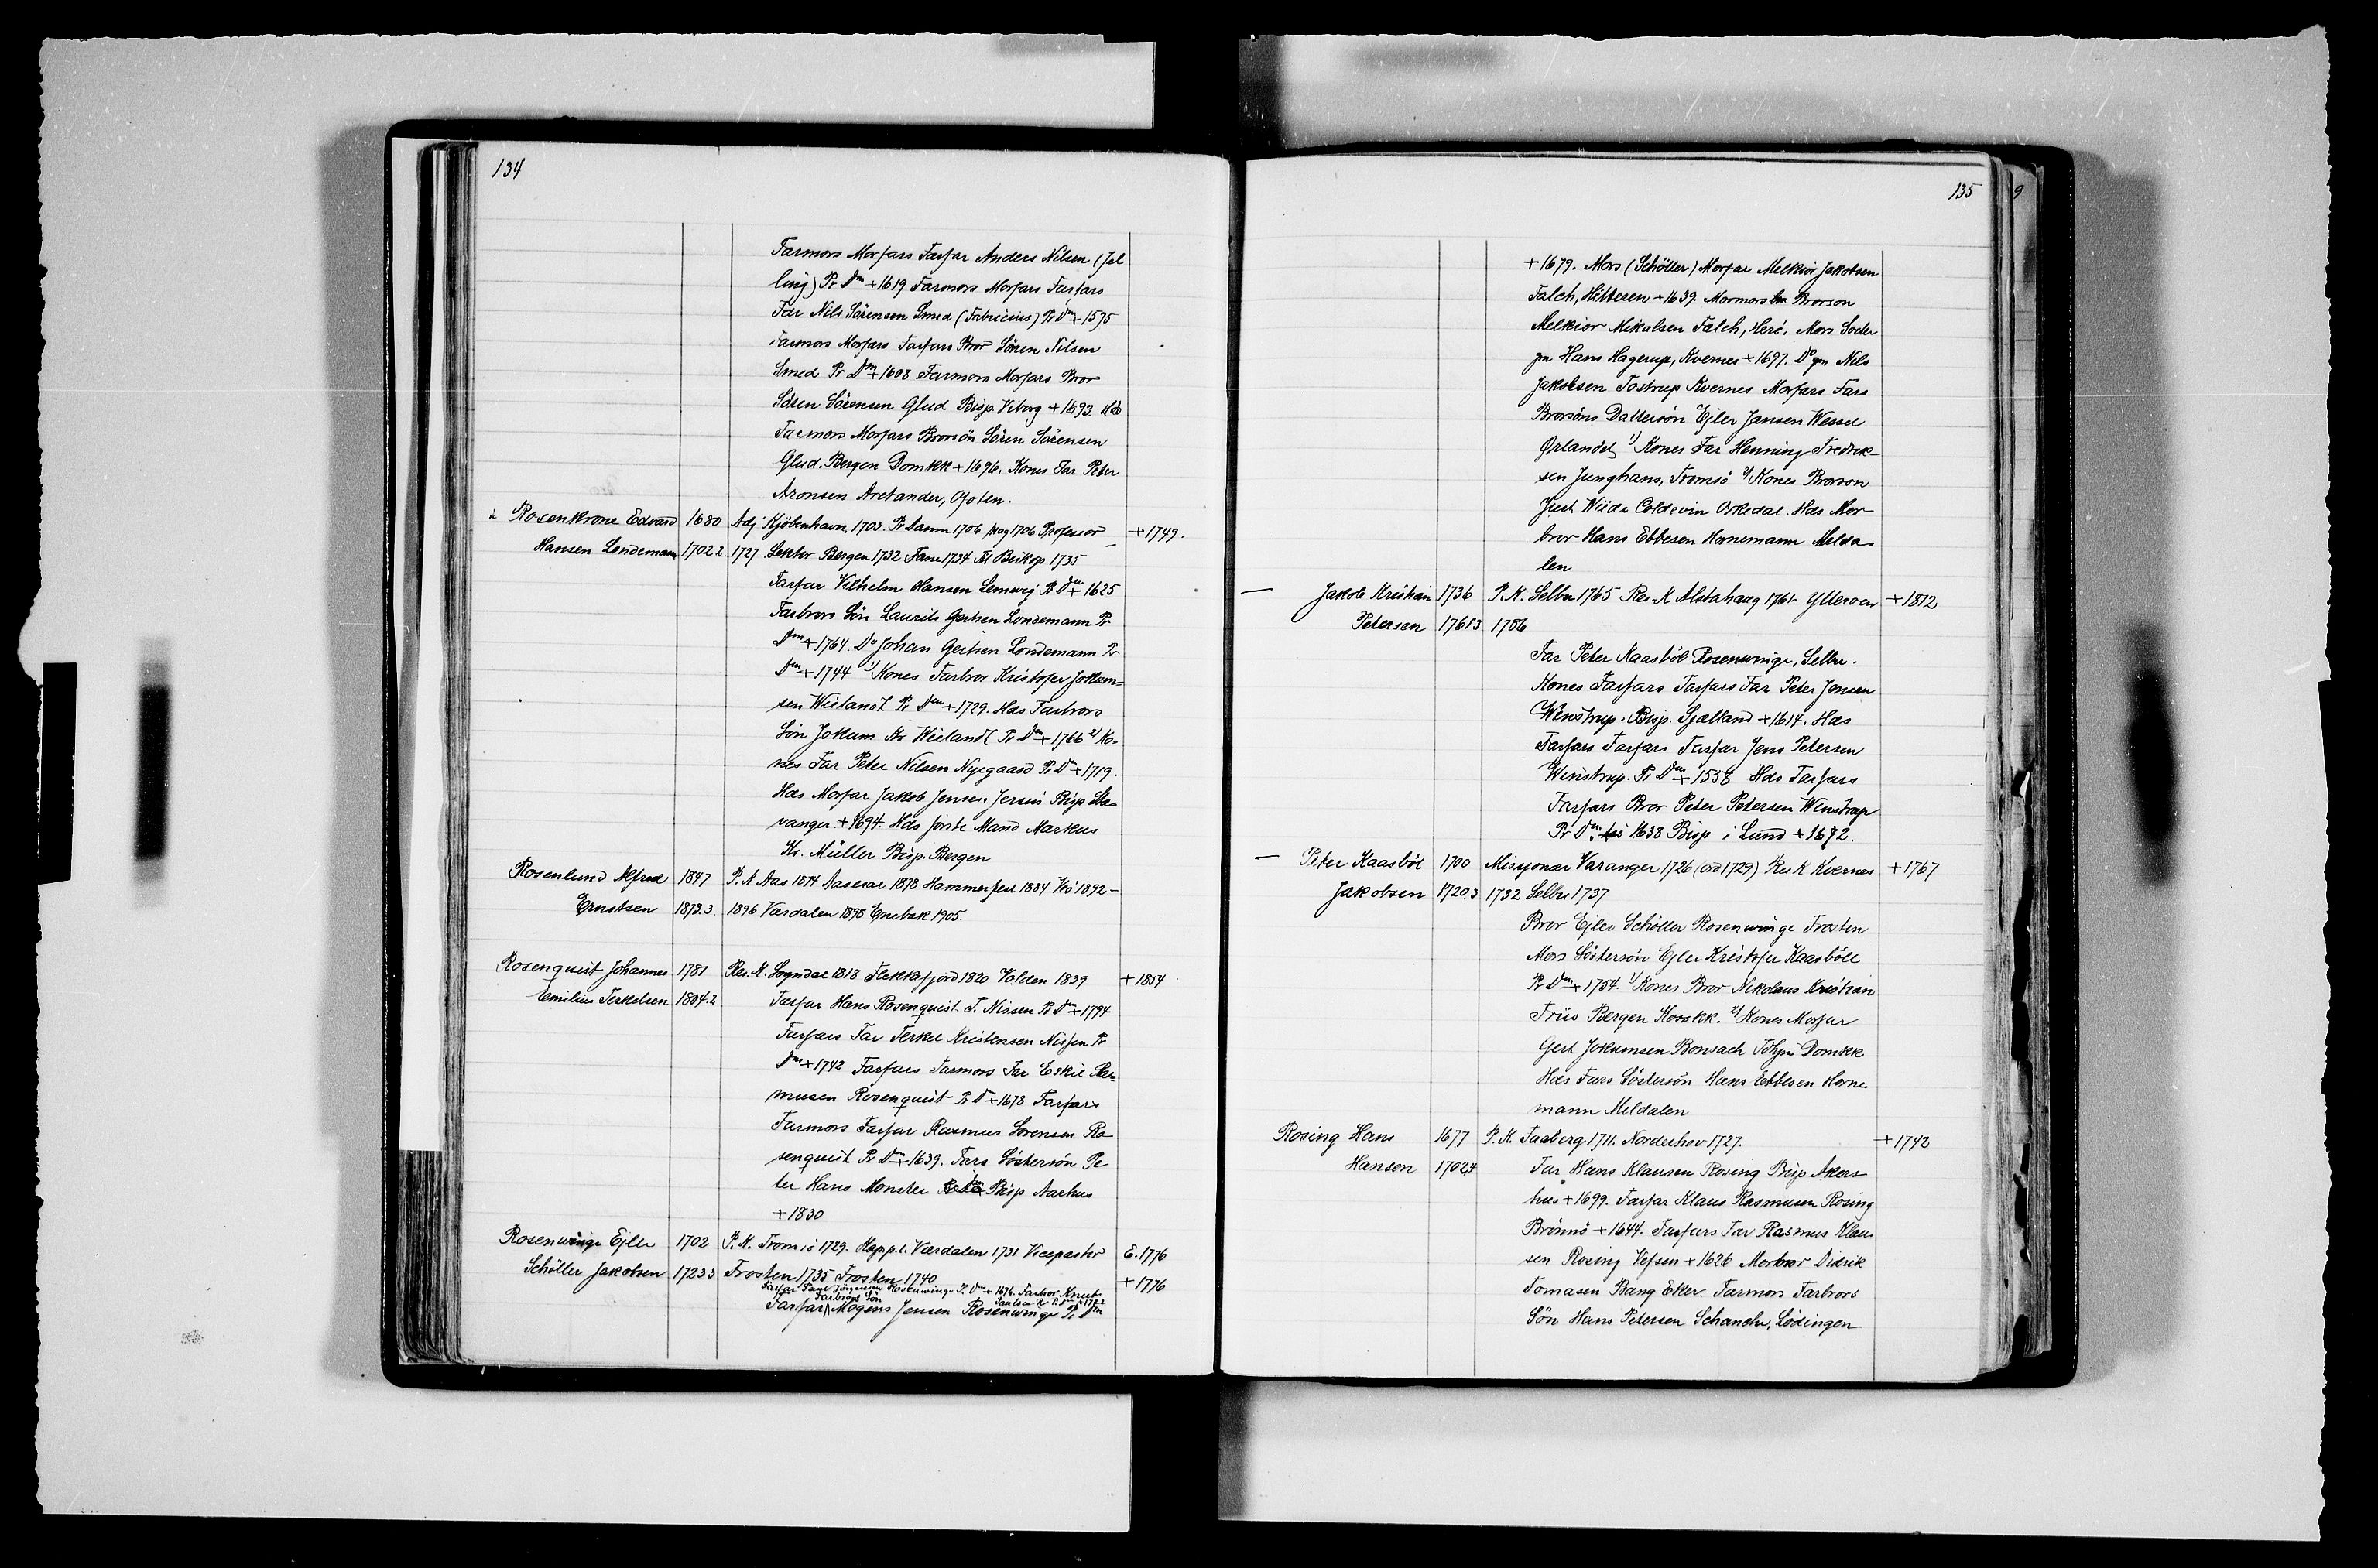 134
Farmors Morfars Farfar Anders Nilsen (Jel
ling) Pr Dm +1619 Farmors Morfars Farfars
Far Nils Sörensen Smed (Fabricius) Pr Dm +1575
Farmors Morfars Farfars Bror Sören Nilsen
Smed Pr Dm +1608 Farmors Morfars Bror
Sören Sörensen Glud Bisp. Viborg +1693. Hds
Farmors Morfars Brorsön Sören Sörensen
Glud. Bergen Domkk +1696. Kones Far Peter
Aronsen Arctander, Ofoten.
Rosenkrone Edvard 1680 Adj Kjöbenhavn. 1703. Pr Damm 1706 Mag 1706 Professor +1749.
Hansen Londemann 1702 2. 1727 Lektor Bergen 1732 Fane 1734 Biskop 1735
Farfar Vilhelm Hansen Lemvig Pr Dm +1625
Farbrors Sön Laurits Gertsen Londemann Pr
Dm +1764. Do Johan Geitsen Londemann Pr
Dm +1744 1) Kones Farbror Kristofer Jokum=
sen Wielandt Pr Dm +1729. Hds Farbrors
Sön Jokum Kr Wielandt Pr Dm +1766 2) Ko-
nes Far Peter Nilsen Nyegaard Pr Dm +1719.
Hds Morfar Jakob Jensen Jersin Bisp Sta=
vanger. +1694. Hds förste Mand Markus
Kr. Müller Bisp. Bergen
Rosenlund Alfred 1847 P. K Aas 1874 Aaseral 1878 Hammerfest 1884 1892-
Ernstsen 1873.3. 1896 Værdalen 1898 Enebak 1905.
Rosenquist Johannes 1781 Res. K. Sogndal 1818 Flekkefjord 1820 Volden 1839 +1854
Emilius Terkelsen 1804.2 Farfar Hans Rosenquist. T. Nissen Pr Dm +1794
Farfars Far Terkel Kristensen Nissen Pr
Dm +1742 Farfars Farmors Far Eskil Ras=
musen Rosenquist Pr D +1678 Farfars
Farmors Farfar Rasmus Sorensen Ro
senquist Pr Dm +1639. Fars Söstersön Pe
ter Hans Monster Bisp Aarhus
+1830
Rosenwinge Ejler 1702 P. K. Tromsö 1729. Kapp. l. Værdalen 1731 Vicepastor E. 1776
Schöller Jakobsen 1723 3 Frosten 1735 Frosten 1740 +1776
Farfar Povel Jörgensen Rosenwinge P. Dm +1676. Farbror Knut
Farbrors Sön Paulsen R Pr Dm +1722
Farfar Mogens Jensen Rosenwinge Pr Dm
135
+1679. Mors (Schöller) Morfar Melkior Jakobsen
Falch, Hitteren +1639. Mormors Brorson
Melkior Mikalsen Falch, Herö. Mors Soster
gm Hans Hagerup, Kvernes +1697. Do gm Nils
Jakobsen Tostrup Kvernes Morfars Fars
Brorsöns Dattersön Ejler Jansen Wessel
Örlandet 1) Kones Far Henning Fredrik-
sen Junghans, Tromsö 2) Kones Brorson
Just Wiide Coldevin Orkedal. Hds Mor-
bror Hans Ebbesen Hornemann Melda-
len
— Jakob Kristian 1736 P. K. Selbu 1765 Res. K Alstahaug 1761 Ytteroen +1812
Petersen 1761 3. 1786
Far Peter Kaasböl Rosenwinge, Selbu.
Kones Farfars Farfars Far Peter Jensen
Winstrup. Bisp. Sjælland +1614. Hds
Farfars Farfars Farfar Jens Petersen
Winstrup. Pr Dm +1558 Hds Farfars
Farfars Bror Peter Petersen Winstrup
Pr Dm 1638 Bisp i Lund +1672.
— Peter Kaasböl 1700 Missjonær Varanger 1726 (ord 1729) Res K Kvernes +1767
Jakobsen 1720.3 1732 Selbu 1737
Bror Ejler Schöller Rosenwinge Frosten
Mors Söstersön Ejler Kristofer Kaasböll
Pr Dm +1754. 1) Kones Bror Nikolaus Kristian
Friis Bergen Korskk. 2) Kones Morfar
Gert Jokumsen Bonsach Tdhjm Domkk
Hds Fars Söstersön Hans Ebbesen Horne
mann Meldalen
Rosing Hans 1677 P. K. Faaberg 1711. Norderhov 1727. +1742
Hansen 1702.4 Far Hans Klausen Rosing Bisp Akers
hus +1699. Farfar Klaus Rasmusen Rosing
Brönnö +1644. Farfars Far Rasmus Klau
sen Rosing Vefsen +1626 Morbror Didrik
Tomasen Bang Eker. Farmors Farbrors
Sön Hans Petersen Schanche, Lödingen